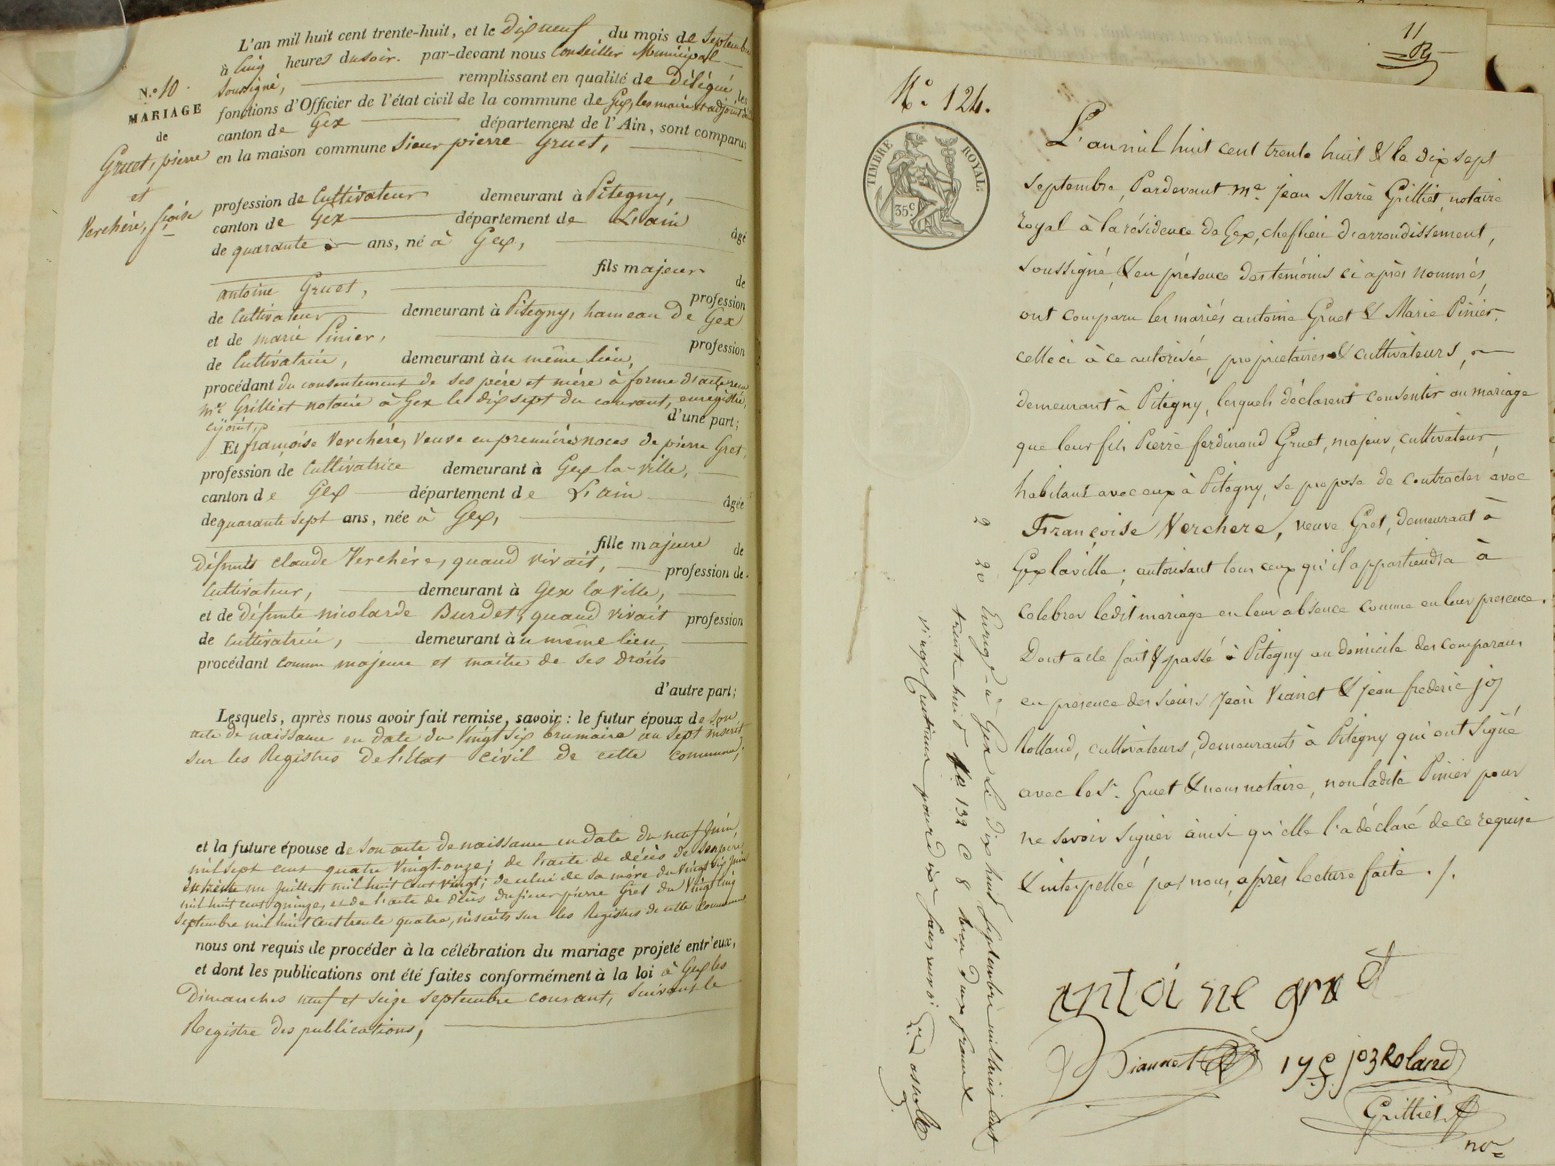 N.º 10.
MARIAGE
de
Gruet, pierre
et
Verchère, f.çoise
L'an mil huit cent trente-huit, et le dix neuf du mois de septembre
à cinq heures du soir. par-devant nous Conseiller Municipal
soussigné, remplissant en qualité de Délégué, les
fonctions d'Officier de l'état civil de la commune de Gex, les maire et adjoint
canton de Gex département de l'Ain, sont comparus
en la maison commune sieur pierre Gruet,
profession de Cultivateur demeurant à Pitegny,
canton de Gex département de L'ain âgé
de quarante ans, né à Gex,
fils majeur de
antoine Gruet, profession
de Cultivateur demeurant à Pitegny, hameau de Gex
et de marie Pinier, profession
de Cultivatrice, demeurant au même lieu,
procédant du consentement de ses père et mère à forme d'acte reçu
me. Grilliet notaire à Gex le dix sept du courant, enregistré,
cijoint, d'une part;
Et françoise Verchère, Veuve en premières noces de pierre Gret,
profession de Cultivatrice demeurant à Gex la-ville,
canton de Gex département de L'ain âgée
de quarante sept ans, née à Gex,
fille majeure de
défunts claude Verchère, quand vivait, profession de
Cultivateur, demeurant à Gex la ville,
et de défunte nicolarde Burdet, quand vivait profession
de Cultivatrice, demeurant au même lieu,
procédant comme majeure et maitre de ses droits
d'autre part;
Lesquels, après nous avoir fait remise, savoir : le futur époux de son
acte de naissance en date du Vingt six brumaire an sept inscrit
sur les Registres de l'état civil de cette commune;
et la future épouse de son acte de naissance en date du neuf juin
mil sept cent quatre Vingt-onze; de l'acte de décès de son père
du juillet mil huit cent vingt; de celui de sa mère du Vingt six juin
mil huit cent quinze, et de l'acte de décès du sieur pierre Gret du Vingt cinq
septembre mil huit cent trente quatre, inscrits sur les Registres de cette Commune
nous ont requis de procéder à la célébration du mariage projeté entr'eux,
et dont les publications ont été faites conformément à la loi à Gex les
Dimanches neuf et seize septembre courant, suivant le
Registre des publications;
11
N.º 124.
TIMBRE ROYAL.
35c
L'an mil huit cent trente huit & le dix sept
septembre, Pardevant me. Jean Marie Grilliet, notaire
royal à la résidence de Gex, cheflieu d'arrondissement,
soussigné, & en présence des témoins ci après nommés,
ont comparu les mariés antoine Gruet & Marie Pinier,
celle ci à ce autorisée, propriétaires & cultivateurs,
demeurant à Pitegny, lesquels déclarent consentir au mariage
que leur fils Pierre ferdinand Gruet, majeur, cultivateur,
habitant avec eux à Pitegny, se propose de contracter avec
Françoise Verchere, veuve Gret, demeurant à
Gex la ville; autorisant tous ceux qu'il appartiendra à
célébrer ledit mariage en leur absence comme en leur présence.
Dont acte fait & passé à Pitegny au domicile des comparans
en présence des sieurs Jean Vianet & jean frederic joz
Rolland, cultivateurs, demeurants à Pitegny qui ont signé
avec le sr. Gruet & nous notaire, non ladite Pinier pour
ne savoir signer ainsi qu'elle l'a déclaré de ce requise
& interpellée par nous, après lecture faite ./.
2 20
Enregé. à Gex le dix huit septembre mil huit cent
trente huit fo 132 C 8 reçu deux francs
vingt centimes pour dixe sans renvoi
antoine gruet
joz Roland
Grilliet
nore